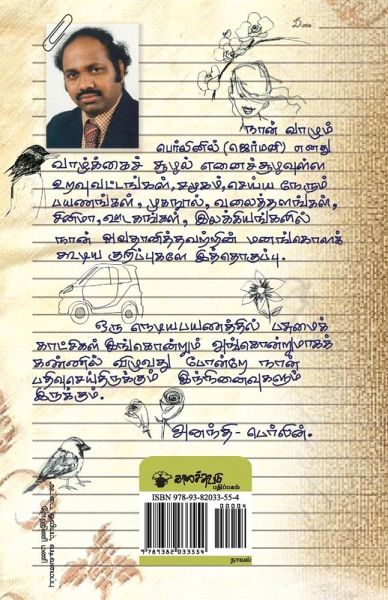 நான் வாழும்
பெர்லினில் (ஜெர்மனி) எனது
வாழ்க்கைச் சூழல் எனைச்சூழவுள்ள
உறவுவட்டங்கள், சமூகம், செய்ய நேரும்
பயணங்கள், முகநூல், வலைத்தளங்கள்,
சினிமா, ஊடகங்கள், இலக்கியங்களில்
நான் அவதானித்தவற்றின் மனங்கொளக்
கூடிய குறிப்புகளே இத்தொகுப்பு.
ஒரு நெடியபயணத்தில் பசுமைக்
காட்சிகள் இங்கொன்றும் அங்கொன்றுமாகக்
கண்ணில் விழுவது போன்றே நான்
பதிவுசெய்திருக்கும் இந்நினைவுகளும்
இருக்கும்.
அனந்தி - பெர்லின்.
காலச்சுவடு
பதிப்பகம்
ISBN 978-93-82033-55-4
00004
9 789382 033554
நாவல்